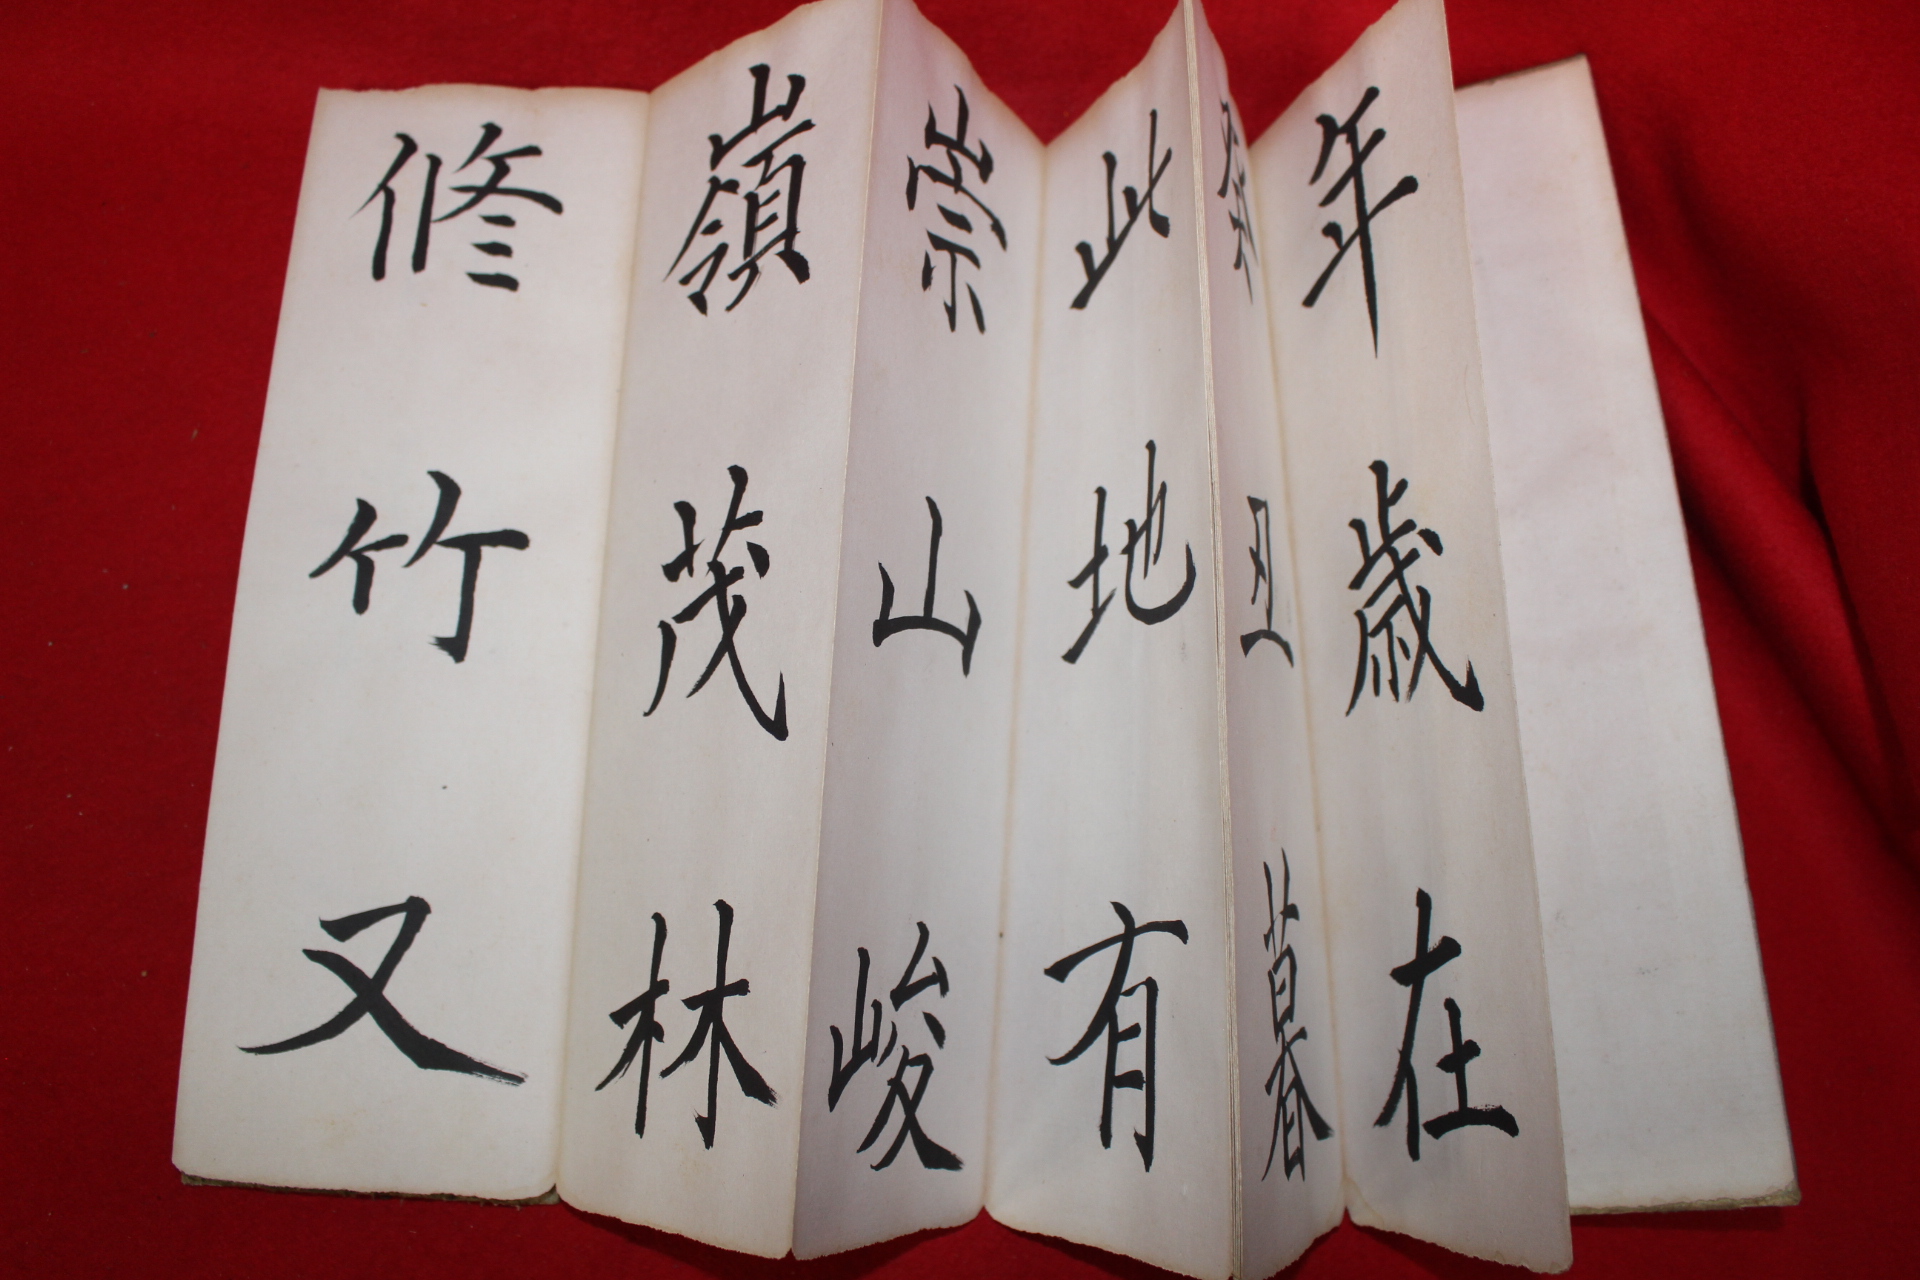 年歲在
癸丑暮
此地有
崇山峻
嶺茂林
修竹又